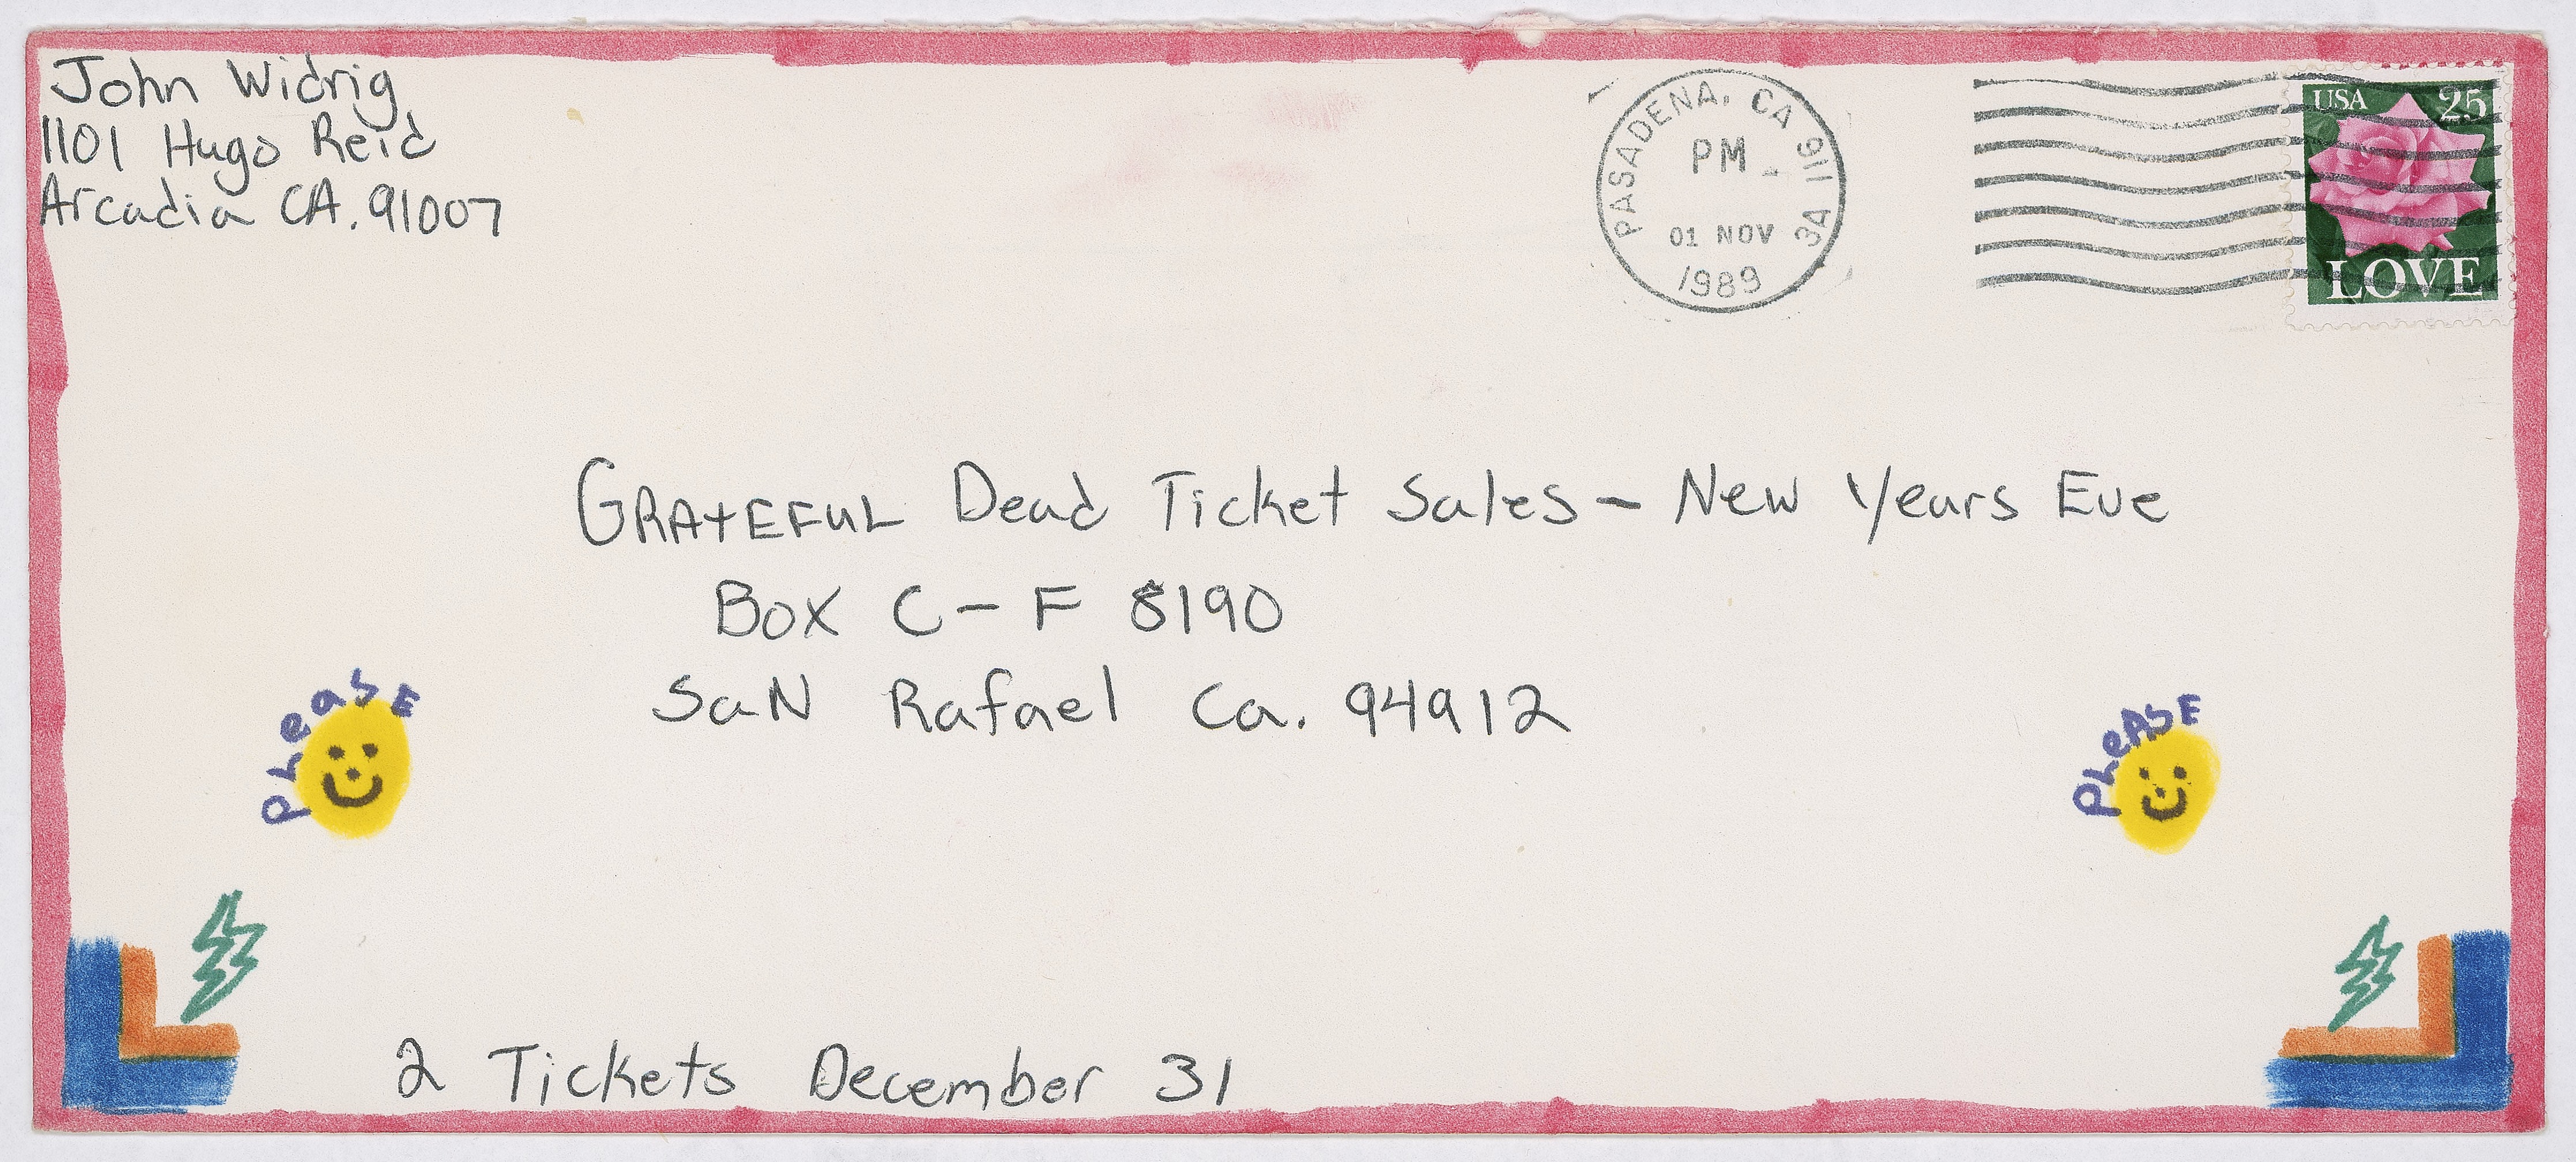 John Widrig
1101 Hugo Reid
Arcadia CA. 91007
PASADENA, CA 911 3A
PM
01 NOV
1989
USA 25
LOVE
GRAtEFuL Dead Ticket Sales - New Years Eve
Box C-F 8190
SaN Rafael Ca. 94912
PleasE
PleASE
2 Tickets December 31